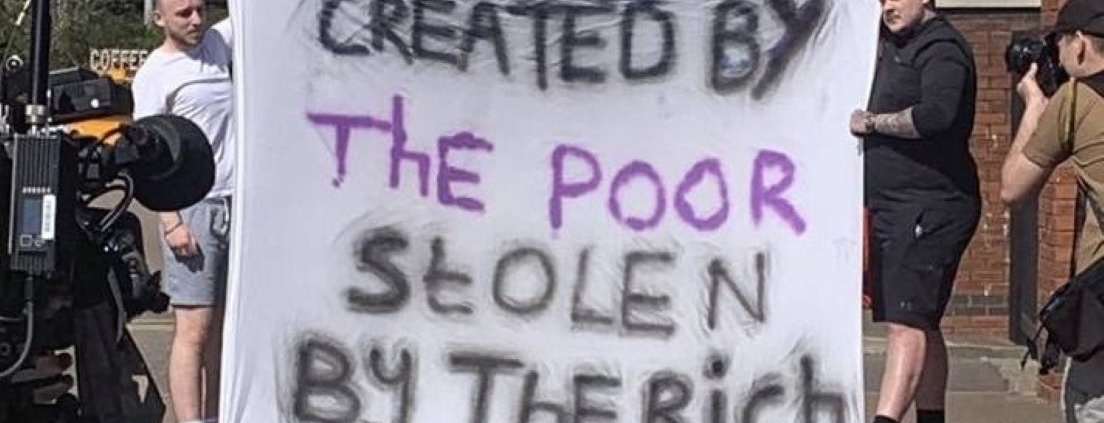 COFFEE
CREATED BY
ThE POOR
StOLEN
By ThE Rich